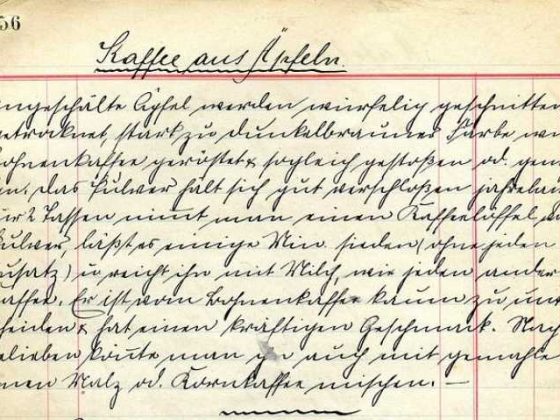 56
Kaffee aus Äpfeln.
ngeschälte Äpfel werden würfelig geschnitten
etrocknet, stark zu dunkelbrauner Farbe wie
ohnenkaffee geröstet & sogleich gestoßen od. gem
n. Das Pulver hält sich gut verschloßen jahrelan
ür 2 Tassen nimt man einen Kaffeelöffel
ulver, läßt es einige Min. sieden (ohne jeden
usatz) u. reicht ihn mit Milch, wie jeden ander
affee. Er ist vom Bohnenkaffee kaum zu un
heiden & hat einen kräftigen Geschmack. Nach
elieben könnte man ihn auch mit gemahle
nen Malz od. Kornkaffee mischen. —